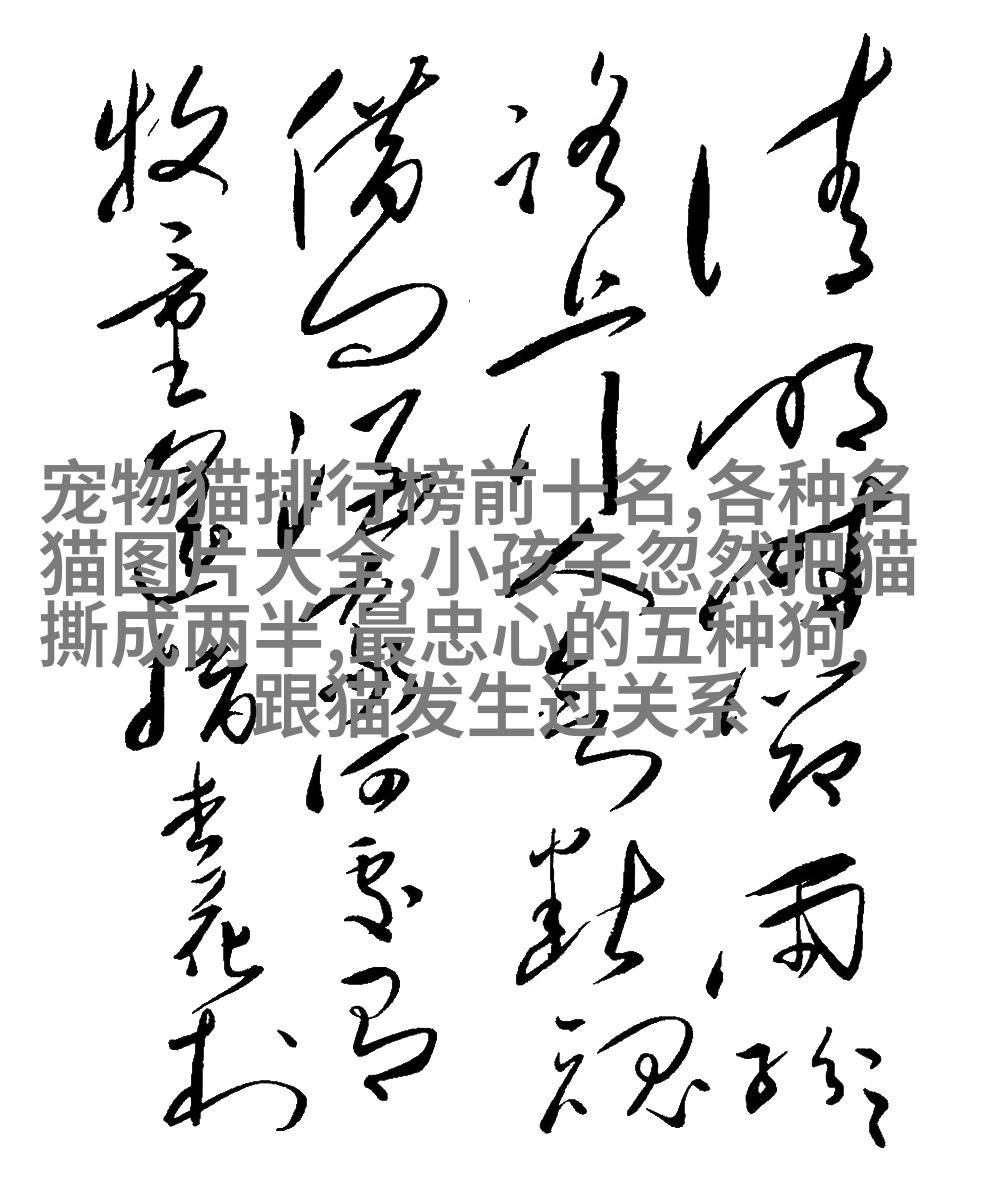 清明時節雨紛紛
路上行人欲斷魂
借問酒家何處有
牧童遙指杏花村
宠物猫排行榜前十名,各种名
猫图片大全,小孩子忽然把猫
撕成两半,最忠心的五种狗,
跟猫发生过关系